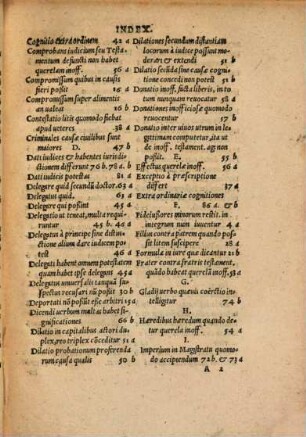 INDEX.
Cognitio extraordinem 42 a
Comprobans iudicium seu Testa-
mentum defuncti non habet
querelam inoff. 56 a
Compromissum quibus in causis
fieri possit
Compromissum super alimentis
an ualeat 16 a
Contestatio litis quomodo fiebat
apud ueteres 38
Criminales causæ ciuilibus sunt
maiores D. 47 b
Dati iudices & habentes iurisdi-
ctionem differunt 76 b. 78 a. b
Dati iudicis potestas 81
Delegare quid secundũ doctor. 63 a
Delegatus quid.
Delegare qui possint 45 a
Delegatio ut teneat, multa requi-
runtur 45 a
Delegatus à principe sine dicta-
tione alium dare iudicem po-
test
Delegati habent omnem potestatem
quam habet ipse delegans 45 a
Delegatus uniuersalis tanquã su-
spectus recusari nõ possit 50 b
Deportati nõ possũt esse arbitri 15 a
Dicendi uerbum multas habet si-
gnificationes 66 b
Dilatio in capitalibus actori du-
plex, reo triplex cõceditur 51 a
Dilatio probationum proferenda
rum causa qualis 50 b
Dilationes secundum distantiam
locorum à iudice possunt mode-
rari & extendi 51 b
Dilatio sechda sine causæ cogni-
tione concedi non potest 51 b
Donatio inoff. facta liberis, in to-
tum nunquam reuocatur 60 b
Donationes inofficiosæ quomodo
reuocentur 62 b
Donatio inter uiuos utrum in le-
gitimam computetur, ibi aut
de inoff. testament. agi non
possit. E. 55 b
Effectus querelæ inoff. 56 a
Exceptio à præscriptione
differt 17 a
Extra ordinariæ cognitiones
qui F. 86 a. & b
Fideiussores minorum restit. in
integrum non iuuantur 43 a
Filius contra patrem quando pos-
sit litem suscipere 28 a
Formula in iure qua dicantur 1 b
Frater contra fratris testament.
quãdo habebit querelã inoff. 53 a
G.
Gladij uerbo quæuis coërctio in-
telligitur 74 b
H.
Hæredibus hæredum quando de-
tur querela inoff. 54 a
I.
Imperium in Magistratu quomo-
do accipiendum 72 b. & 73 a
A 2